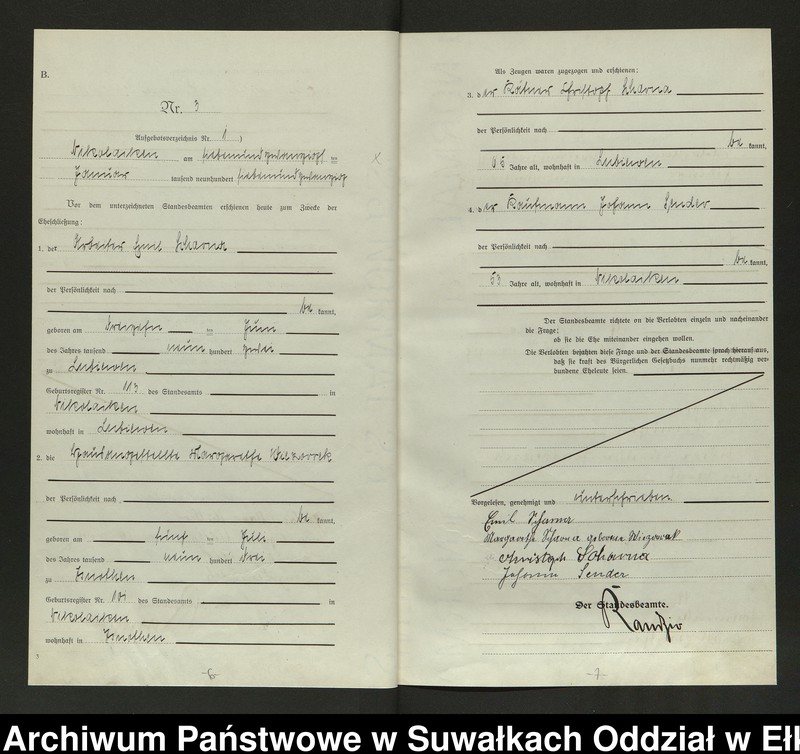 B.
Nr. 3
Aufgebotsverzeichnis Nr. 1)
Nikolaiken am siebenundzwanzigsten
Januar tausend neunhundert siebenundzwanzig
Vor dem unterzeichneten Standesbeamten erschienen heute zum Zwecke der
Eheschließung:
1. der Arbeiter Emil Scharna
der Persönlichkeit nach
bekannt,
geboren am dreizehnten Juni
des Jahres tausend neun hundert zwei
zu
Geburtsregister Nr. 113 des Standesamts in
Nikolaiken
wohnhaft in
2. die Hausangestellte Margarethe
der Persönlichkeit nach
bekannt,
geboren am fünften Juli
des Jahres tausend neun hundert drei
zu
Geburtsregister Nr. des Standesamts in
Nikolaiken
wohnhaft in
-6-
Als Zeugen waren zugezogen und erschienen:
3. der Kätner Christoph Scharna
der Persönlichkeit nach
bekannt,
Jahre alt, wohnhaft in
4. der Kaufmann Johann Sender
der Persönlichkeit nach
bekannt,
53 Jahre alt, wohnhaft in Nikolaiken
Der Standesbeamte richtete an die Verlobten einzeln und nacheinander
die Frage:
ob sie die Ehe miteinander eingehen wollen.
Die Verlobten bejahten diese Frage und der Standesbeamte sprach hierauf aus,
daß sie kraft des Bürgerlichen Gesetzbuchs nunmehr rechtmäßig ver-
bundene Eheleute seien.
Vorgelesen, genehmigt und unterschrieben
Emil Scharna
Margarethe Scharna geborene
Christoph Scharna
Johann Sender
Der Standesbeamte.
-7-
Archiwum Państwowe w Suwałkach Oddział w Eł